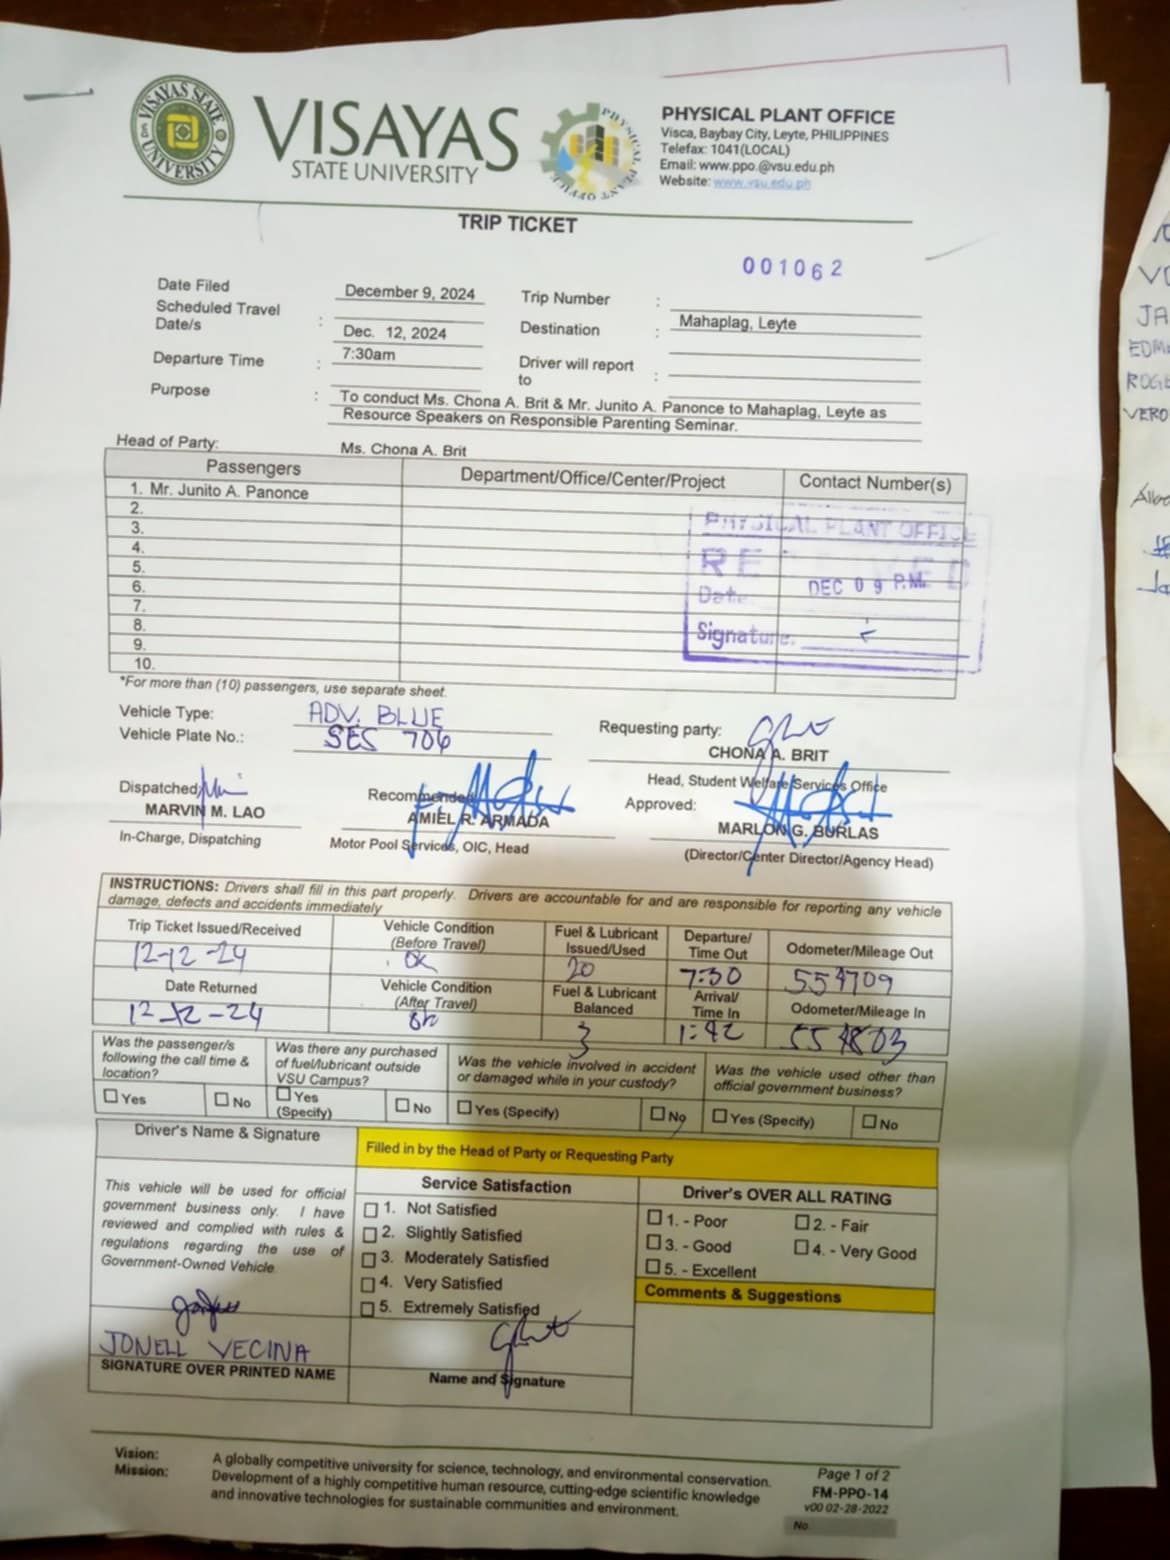 VISAYAS STATE UNIVERSITY
VISAYAS
STATE UNIVERSITY
PHYSICAL PLANT OFFICE
PHYSICAL PLANT OFFICE
Visca, Baybay City, Leyte, PHILIPPINES
Telefax: 1041(LOCAL)
Email: www.ppo.@vsu.edu.ph
Website: www.vsu.edu.ph
TRIP TICKET
001062
Date Filed December 9, 2024 Trip Number :
Scheduled Travel Date/s : Dec. 12, 2024 Destination : Mahaplag, Leyte
Departure Time : 7:30am Driver will report to :
Purpose : To conduct Ms. Chona A. Brit & Mr. Junito A. Panonce to Mahaplag, Leyte as
Resource Speakers on Responsible Parenting Seminar.
Head of Party: Ms. Chona A. Brit
Passengers Department/Office/Center/Project Contact Number(s)
1. Mr. Junito A. Panonce
2.
3.
4.
5.
6.
7.
8.
9.
10.
PHYSICAL PLANT OFFICE
Date: DEC 09 P.M.
Signature:
*For more than (10) passengers, use separate sheet.
Vehicle Type: ADV. BLUE
Vehicle Plate No.: SES 706
Requesting party:
CHONA A. BRIT
Head, Student Welfare Services Office
Dispatched: Recommended Approved:
MARVIN M. LAO AMIEL R. ARMADA MARLON G. BURLAS
In-Charge, Dispatching Motor Pool Services, OIC, Head (Director/Center Director/Agency Head)
INSTRUCTIONS: Drivers shall fill in this part properly. Drivers are accountable for and are responsible for reporting any vehicle
damage, defects and accidents immediately
Trip Ticket Issued/Received Vehicle Condition (Before Travel) Fuel & Lubricant Issued/Used Departure/ Time Out Odometer/Mileage Out
12-12-24 OK 20 7:30 554709
Date Returned Vehicle Condition (After Travel) Fuel & Lubricant Balanced Arrival/ Time In Odometer/Mileage In
12-12-24 OK 3 1:42 554803
Was the passenger/s following the call time & location?
Was there any purchased of fuel/lubricant outside VSU Campus?
Was the vehicle involved in accident or damaged while in your custody?
Was the vehicle used other than official government business?
Yes No Yes (Specify) No Yes (Specify) No Yes (Specify) No
Driver's Name & Signature
Filled in by the Head of Party or Requesting Party
This vehicle will be used for official
government business only. I have
reviewed and complied with rules &
regulations regarding the use of
Government-Owned Vehicle.
JONELL VECINA
SIGNATURE OVER PRINTED NAME
Service Satisfaction
1. Not Satisfied
2. Slightly Satisfied
3. Moderately Satisfied
4. Very Satisfied
5. Extremely Satisfied
Name and Signature
Driver's OVER ALL RATING
1. - Poor 2. - Fair
3. - Good 4. - Very Good
5. - Excellent
Comments & Suggestions
Vision: A globally competitive university for science, technology, and environmental conservation.
Mission: Development of a highly competitive human resource, cutting-edge scientific knowledge
and innovative technologies for sustainable communities and environment.
Page 1 of 2
FM-PPO-14
v00 02-28-2022
No.